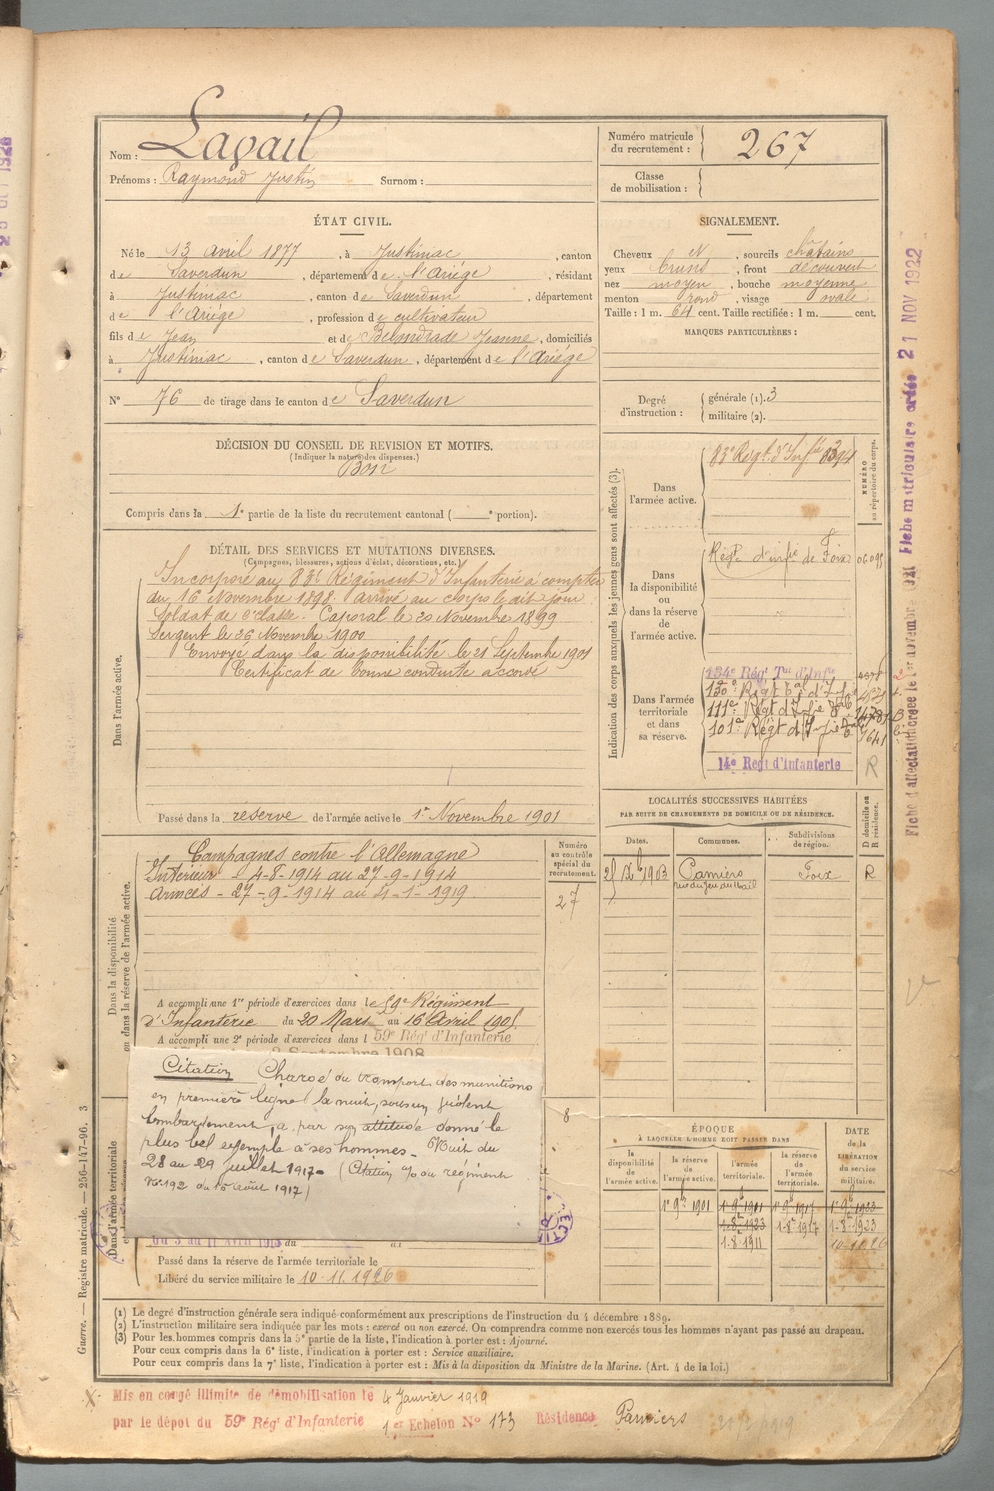 Nom : Lavail
Prénoms : Raymond Justin Surnom :
Numéro matricule du recrutement : 267
Classe de mobilisation :
ÉTAT CIVIL.
Né le 13 avril 1877, à Justiniac, canton
de Saverdun, département de l'Ariége, résidant
à Justiniac, canton de Saverdun, département
de l'Ariége, profession de cultivateur
fils de Jean et de Jeanne, domiciliés
à Justiniac, canton de Saverdun, département de l'Ariége
N° 76 de tirage dans le canton de Saverdun
SIGNALEMENT.
Cheveux N, sourcils châtains
yeux bruns, front découvert
nez moyen, bouche moyenne
menton rond, visage ovale
Taille : 1 m. 64 cent. Taille rectifiée : 1 m. cent.
MARQUES PARTICULIÈRES :
Degré d'instruction : générale (1). 3
militaire (2).
DÉCISION DU CONSEIL DE REVISION ET MOTIFS.
(Indiquer la nature des dispenses.)
Bon
Compris dans la 1e partie de la liste du recrutement cantonal ( e portion).
DÉTAIL DES SERVICES ET MUTATIONS DIVERSES.
(Campagnes, blessures, actions d'éclat, décorations, etc.)
Dans l'armée active.
Incorporé au 83e Régiment d'Infanterie à compter
du 16 Novembre 1898. arrivé au corps le dit jour
Soldat de 2e classe. Caporal le 20 Novembre 1899
Sergent le 26 Novembre 1900
Envoyé dans la disponibilité le 21 Septembre 1901
Certificat de bonne conduite accordé
Passé dans la réserve de l'armée active le 1er Novembre 1901
Dans la disponibilité ou dans la réserve de l'armée active.
Campagnes contre l'Allemagne
Intérieur - 4-8-1914 au 27-9-1914
Armées - 27-9-1914 au 4-1-1919
Numéro au contrôle spécial du recrutement.
27
A accompli une 1re période d'exercices dans le 59e Régiment
d'Infanterie du 20 Mars au 16 Avril
A accompli une 2e période d'exercices dans l 59e Rég' d'Infanterie
Septembre 1908
Citation Chargé du transport des munitions
en première ligne la nuit, sous un violent
bombardement, a par son attitude donné le
plus bel exemple à ses hommes. Nuit du
28 au 29 juillet 1917 - (Citation du régiment
N° 192 du 15 août 1917)
8
Dans l'armée territoriale
du 3 au 11 Avril du au
Passé dans la réserve de l'armée territoriale le
Libéré du service militaire le 10.11.1926
Indication des corps auxquels les jeunes gens sont affectés (3).
NUMÉRO au répertoire du corps.
Dans l'armée active.
83e Régt d'Infie
Dans la disponibilité ou dans la réserve de l'armée active.
Régt d'infie de Foix
Dans l'armée territoriale et dans sa réserve.
134e Rég' Tal d'Infie
130e Régt
111e Régt
101e Régt
14e Régt d'Infanterie
R
LOCALITÉS SUCCESSIVES HABITÉES
PAR SUITE DE CHANGEMENTS DE DOMICILE OU DE RÉSIDENCE.
Dates. Communes. Subdivisions de région. D domicile ou R résidence.
1903 Pamiers Foix R
ÉPOQUE
À LAQUELLE L'HOMME DOIT PASSER DANS
la disponibilité de l'armée active.
la réserve de l'armée active.
l'armée territoriale.
la réserve de l'armée territoriale.
DATE de la LIBÉRATION du service militaire.
1-8-1923
1-8-1911
10-11-26
(1) Le degré d'instruction générale sera indiqué conformément aux prescriptions de l'instruction du 4 décembre 1889.
(2) L'instruction militaire sera indiquée par les mots : exercé ou non exercé. On comprendra comme non exercés tous les hommes n'ayant pas passé au drapeau.
(3) Pour les hommes compris dans la 5e partie de la liste, l'indication à porter est : Ajourné.
Pour ceux compris dans la 6e liste, l'indication à porter est : Service auxiliaire.
Pour ceux compris dans la 7e liste, l'indication à porter est : Mis à la disposition du Ministre de la Marine. (Art. 4 de la loi.)
Mis en congé illimité de démobilisation le 4 Janvier 1919
par le dépôt du 59e Rég' d'Infanterie 1er Echelon N° 173 Résidence Pamiers
Guerre. — Registre matricule. — 256-147-96. 3
Fiche matriculaire créée 21 NOV 1922